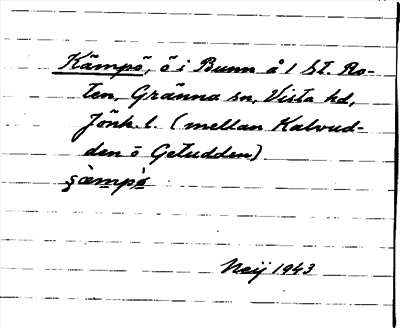 Kämpö, ö i Bunn å 1 St. Ro-
ten, Gränna sn, Vista hd,
Jönk. l. (mellan Kalvud-
den o Getudden)
Neij 1943